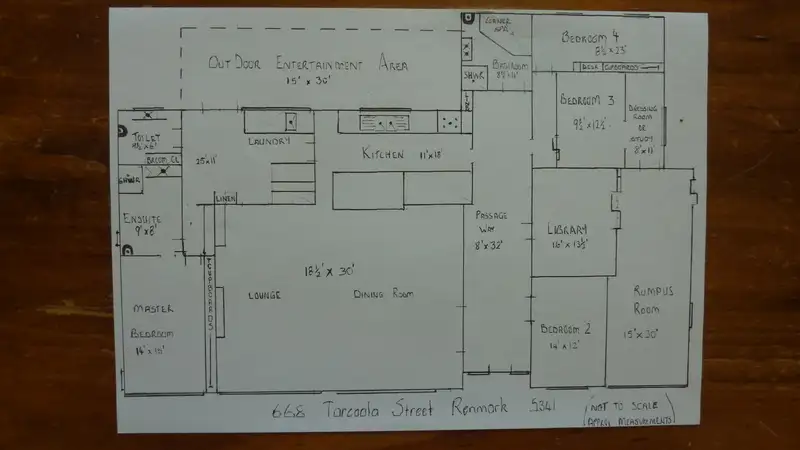 CORNER
BEDROOM 4
8½'x 23'
OUTDOOR ENTERTAINMENT AREA
15' x 30'
SHWR
BATHROOM
DESK CUPBOARDS
BEDROOM 3
9½'x12½'
DRESSING
ROOM
OR
STUDY
8'x 11'
TOILET
BROOM CL
SHWR
25'x11'
LAUNDRY
KITCHEN 11'x18'
LINEN
ENSUITE
9'x8'
PASSAGE
WAY
8'x 32'
LIBRARY
16' x 13½'
CUPBOARDS
18½' x 30'
LOUNGE
DINING ROOM
MASTER
BEDROOM
BEDROOM 2
14' x 12'
RUMPUS
ROOM
15'x 30'
668 Tarcoola Street Renmark 5341
(NOT TO SCALE
MEASUREMENTS)